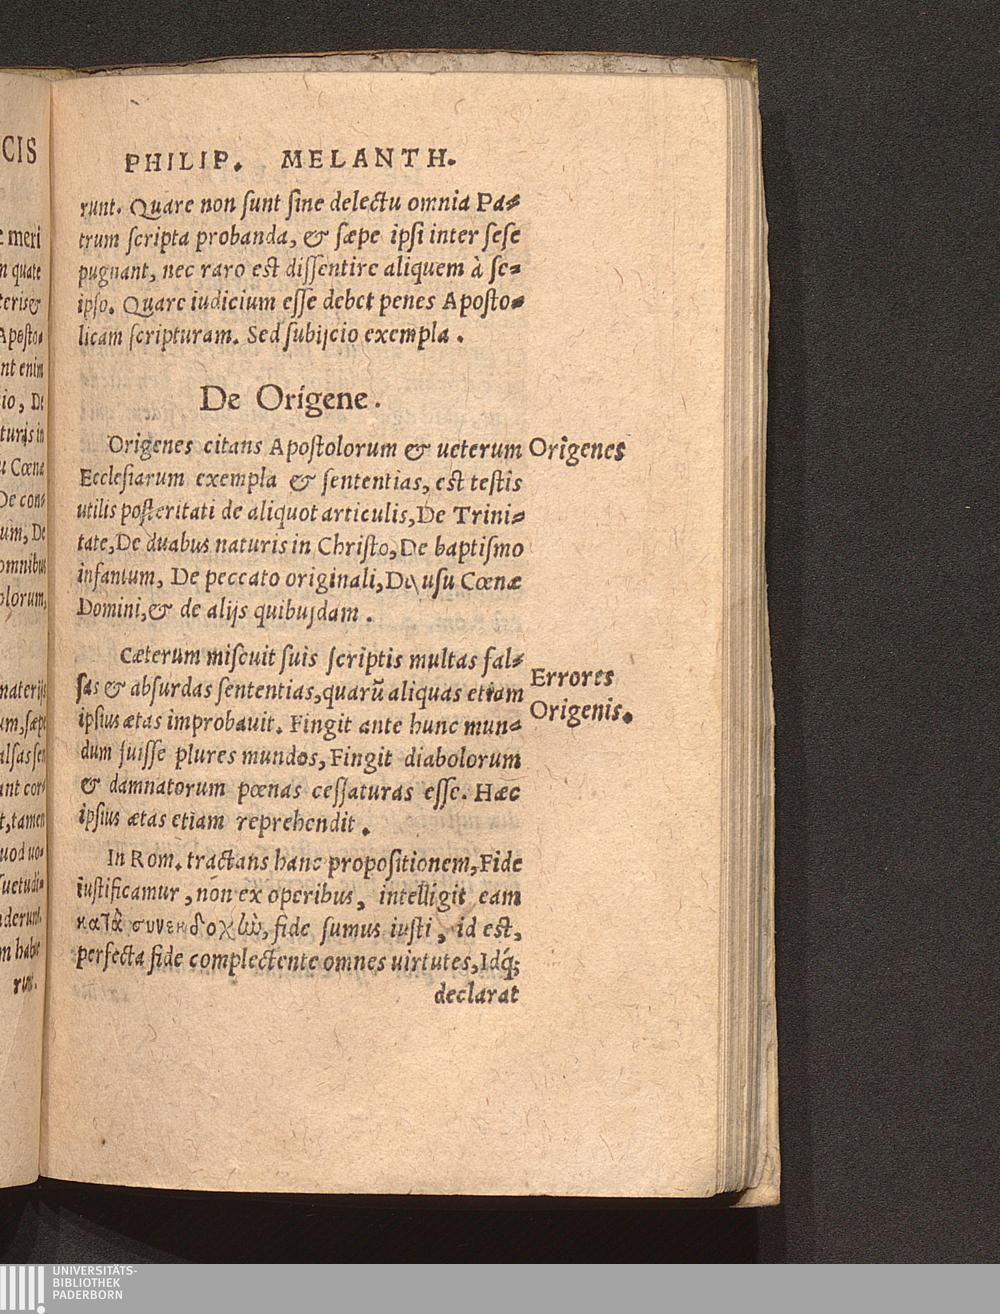 CIS
PHILIP. MELANTH.
runt. Quare non sunt sine delectu omnia Pa-
trum scripta probanda, & sæpe ipsi inter sese
pugnant, nec raro est dissentire aliquem à se-
ipso. Quare iudicium esse debet penes Aposto-
licam scripturam. Sed subijcio exempla.
De Origene.
Origenes citans Apostolorum & ueterum
Ecclesiarum exempla & sententias, est testis
utilis posteritati de aliquot articulis, De Trini-
tate, De duabus naturis in Christo, De baptismo
infantum, De peccato originali, De usu Cœnæ
Domini, & de alijs quibusdam.
Origenes
Cæterum miscuit suis scriptis multas fal-
sas & absurdas sententias, quarũ aliquas etiam
ipsius ætas improbauit. Fingit ante hunc mun-
dum fuisse plures mundos, Fingit diabolorum
& damnatorum pœnas cessaturas esse. Hæc
ipsius ætas etiam reprehendit.
Errores
Origenis.
In Rom. tractans hanc propositionem, Fide
iustificamur, non ex operibus, intelligit eam
κατὰ συνεκδοχὼ, fide sumus iusti, id est,
perfecta fide complectente omnes uirtutes, Idq́;
declarat
meri
quate
Aposto-
nt enim
io, De
turis in
Cœna
De con-
um, De
omnibus
olorum,
materijs
um, sæpe
alsas sen
ant cor-
t, tamen
uod uo-
suetudi-
derunt.
runt.
UNIVERSITÄTS-
BIBLIOTHEK
PADERBORN